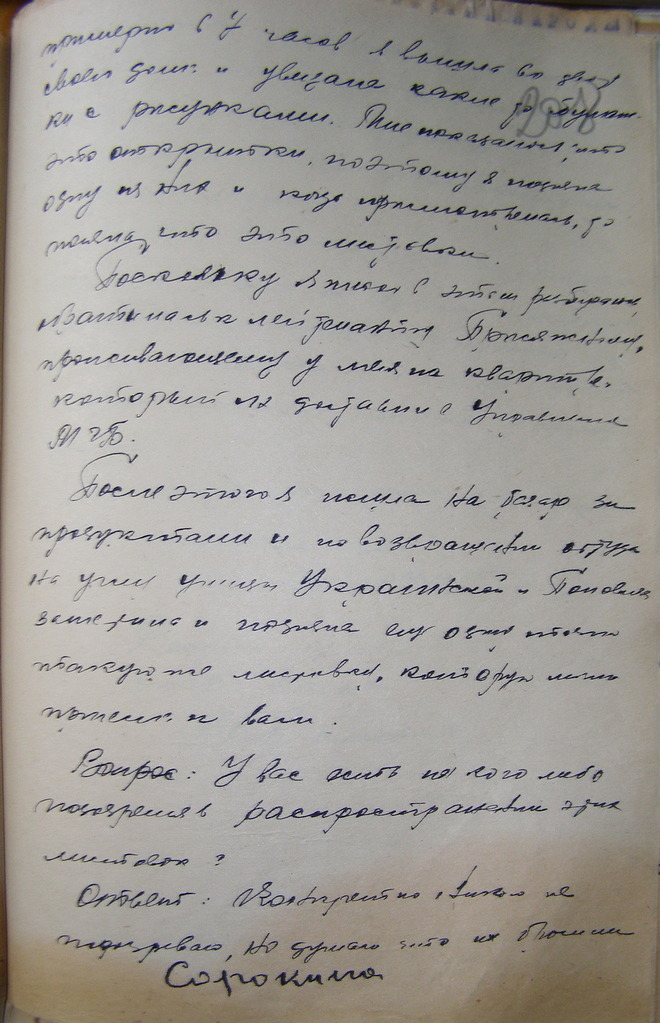 примерно в 7 часов я вышла во двор
своего дома и увидала какие то бумаж-
ки с рисунками. Мне показалось, что
это открытки, поэтому я подняла
одну из них и когда присмотрелась, то
поняла, что это листовки.
Поскольку я в этом
лейтенанту
проживающему у меня на квартире,
который их доставил в Управление
МГБ.
После этого я пошла на базар за
продуктами и по возвращении оттуда
на углу улицы Украинской и
заметила и подняла еще одну
такую же листовку, которую
принесла к вам.
Вопрос: У вас есть на кого либо
подозрения в распространении этих
листовок?
Ответ: Конкретно никого не
подозреваю, но думаю что их бросили
Сорокина